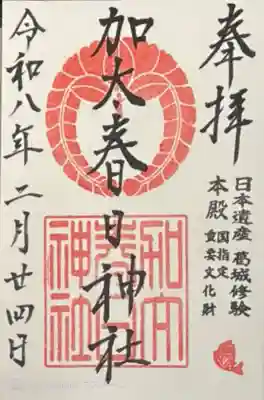 奉拝
日本遺産 葛城修験
本殿 国指定
重要文化財
加太春日神社
加太
春日
神社
令和八年二月廿四日